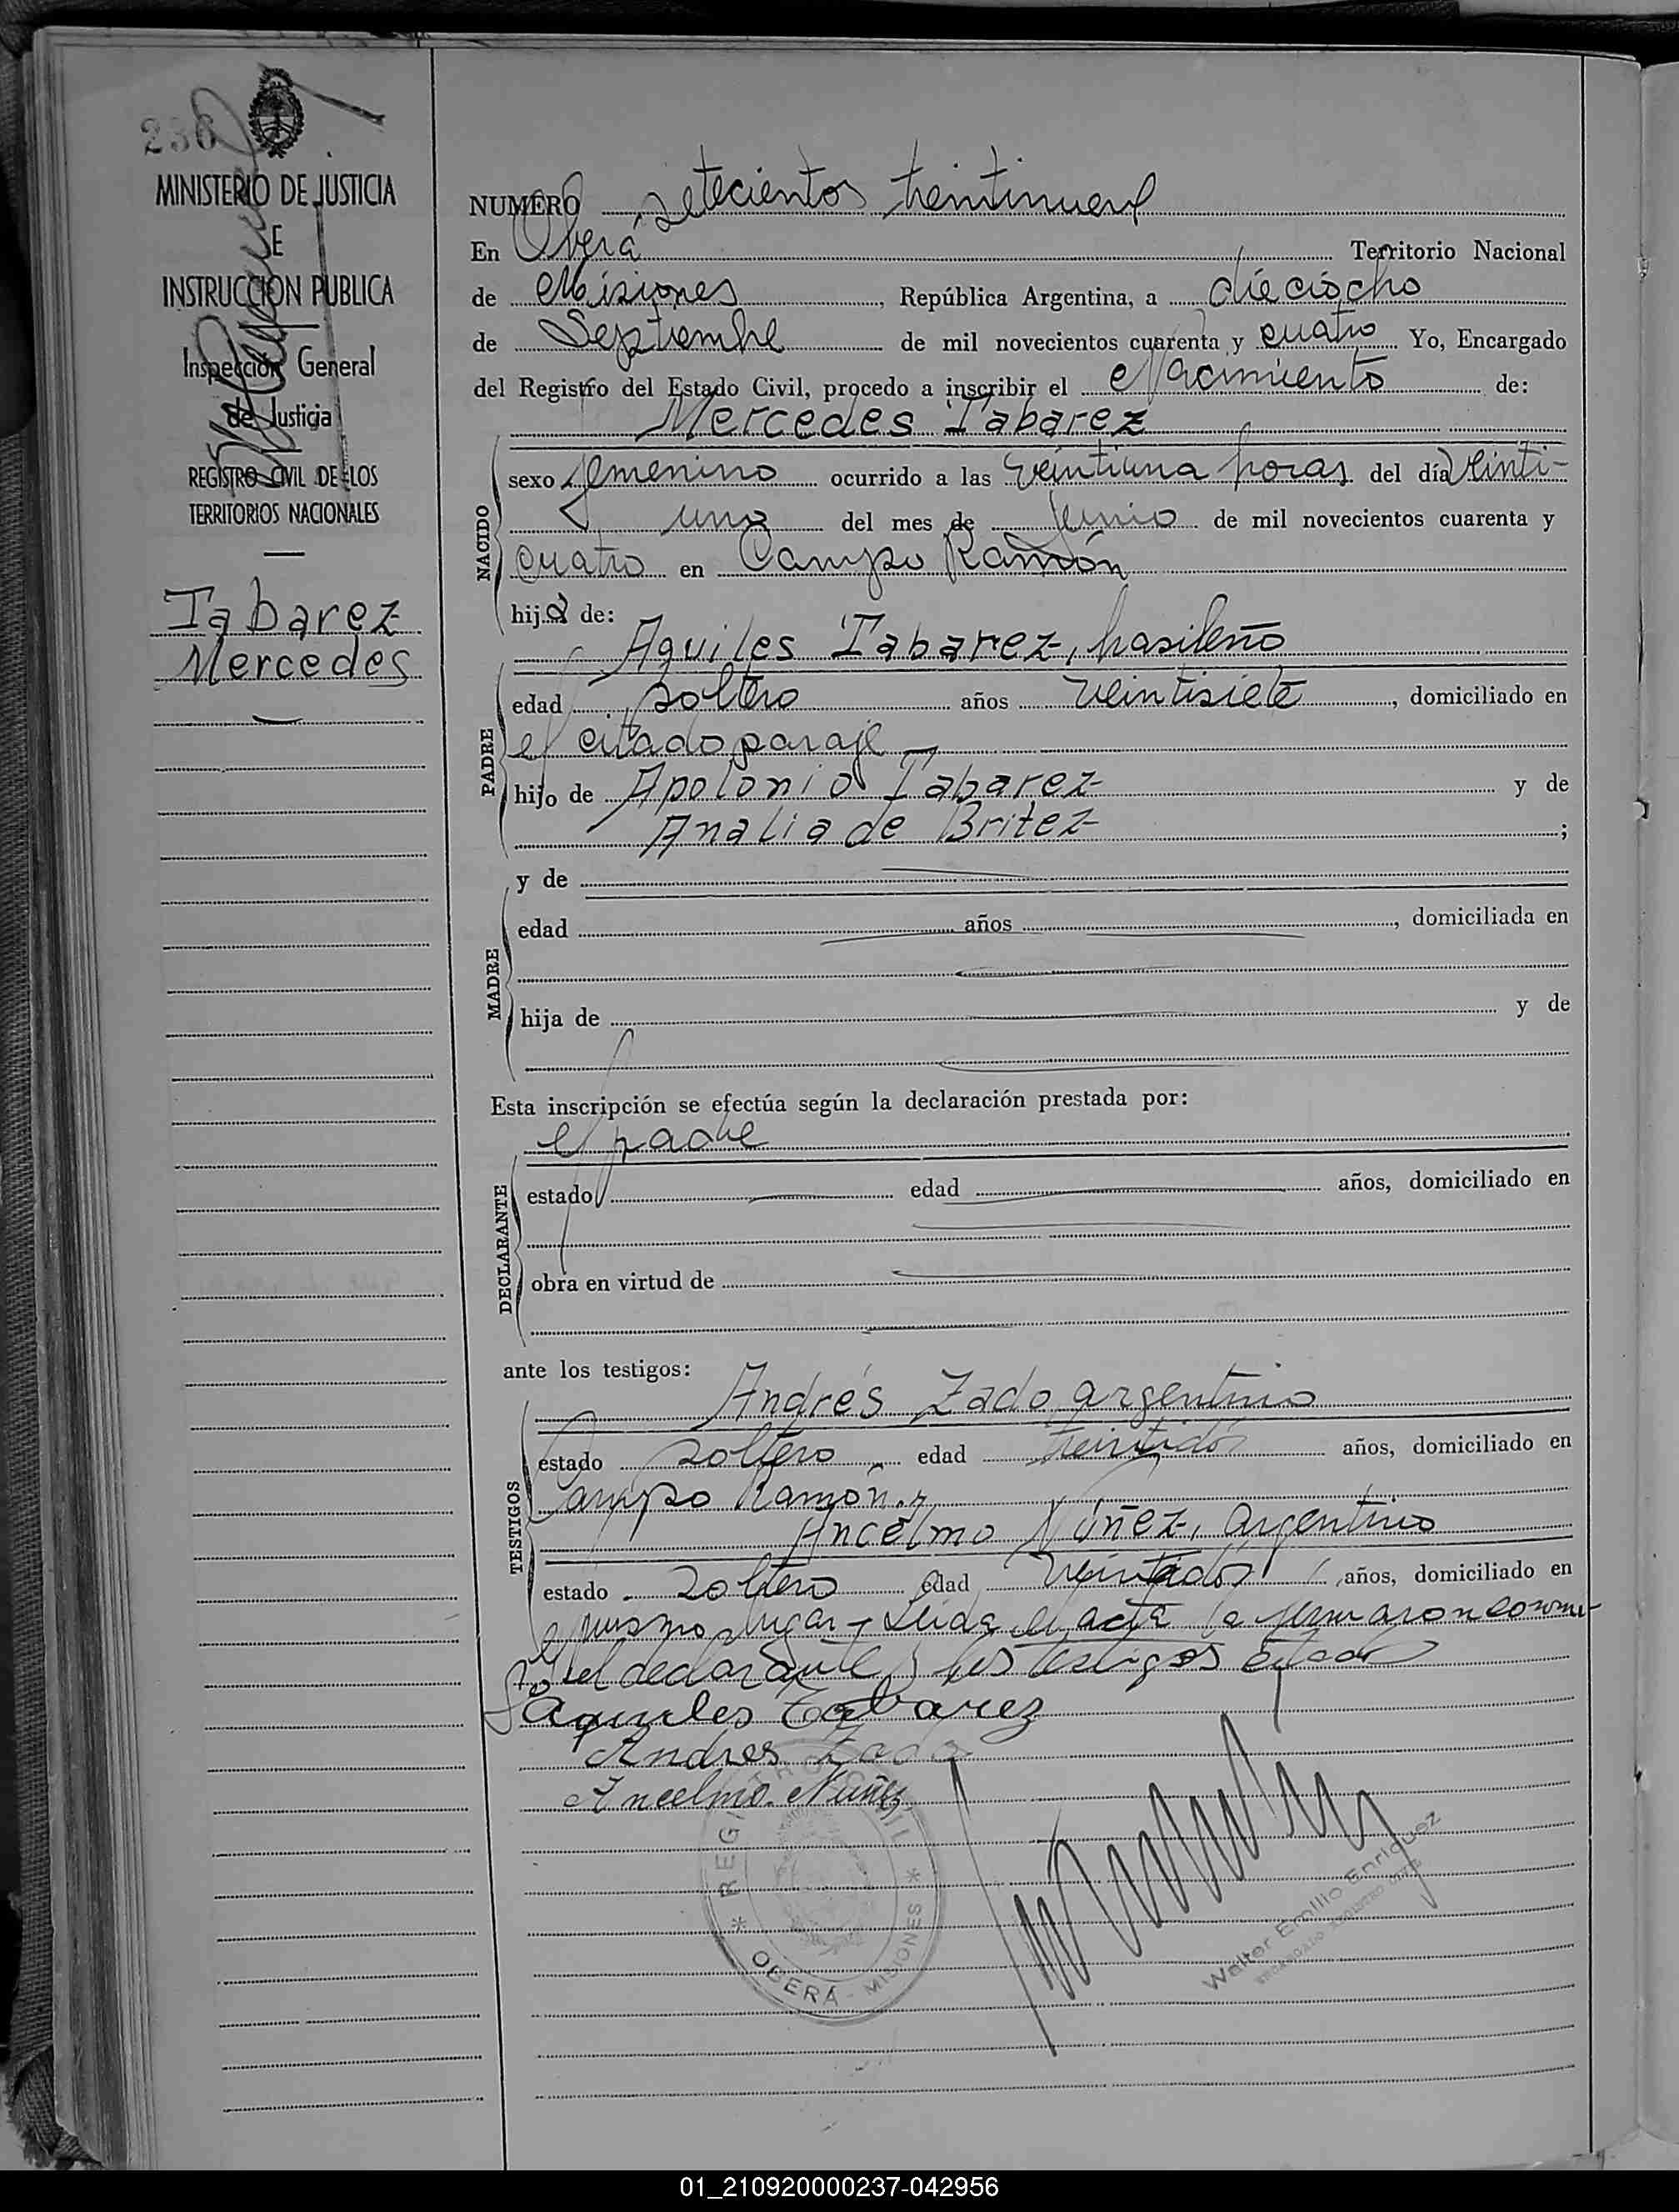 236
MINISTERIO DE JUSTICIA
E
INSTRUCCION PUBLICA
Inspección General
de Justicia
REGISTRO CIVIL DE LOS
TERRITORIOS NACIONALES
Tabarez
Mercedes
NUMERO setecientos treintinueve
En Oberá Territorio Nacional
de Misiones, República Argentina, a dieciocho
de Septiembre de mil novecientos cuarenta y cuatro Yo, Encargado
del Registro del Estado Civil, procedo a inscribir el Nacimiento de:
Mercedes Tabarez
NACIDO
sexo femenino ocurrido a las veintiuna horas del día veinti-
uno del mes de Junio de mil novecientos cuarenta y
cuatro en Campo Ramón
hija de:
Aquiles Tabarez, brasileño
PADRE
edad soltero años veintisiete, domiciliado en
el citado paraje
hijo de Apolonio Tabarez y de
Analia de Britez;
MADRE
y de
edad años, domiciliada en
hija de y de
Esta inscripción se efectúa según la declaración prestada por:
el padre
DECLARANTE
estado edad años, domiciliado en
obra en virtud de
ante los testigos:
Andrés Zado argentino
TESTIGOS
estado soltero edad treintidos años, domiciliado en
Campo Ramón y
Ancelmo Núñez, argentino
estado soltero edad veintidos años, domiciliado en
el mismo lugar - Leida el acta la firmaron conmi-
go el declarante y los testigos
Aquiles Tabarez
Andres Zado
Ancelmo Nuñez
REGISTRO CIVIL
* OBERÁ - MISIONES *
Walter Emilio Enriquez
ENCARGADO REGISTRO CIVIL
01_210920000237-042956